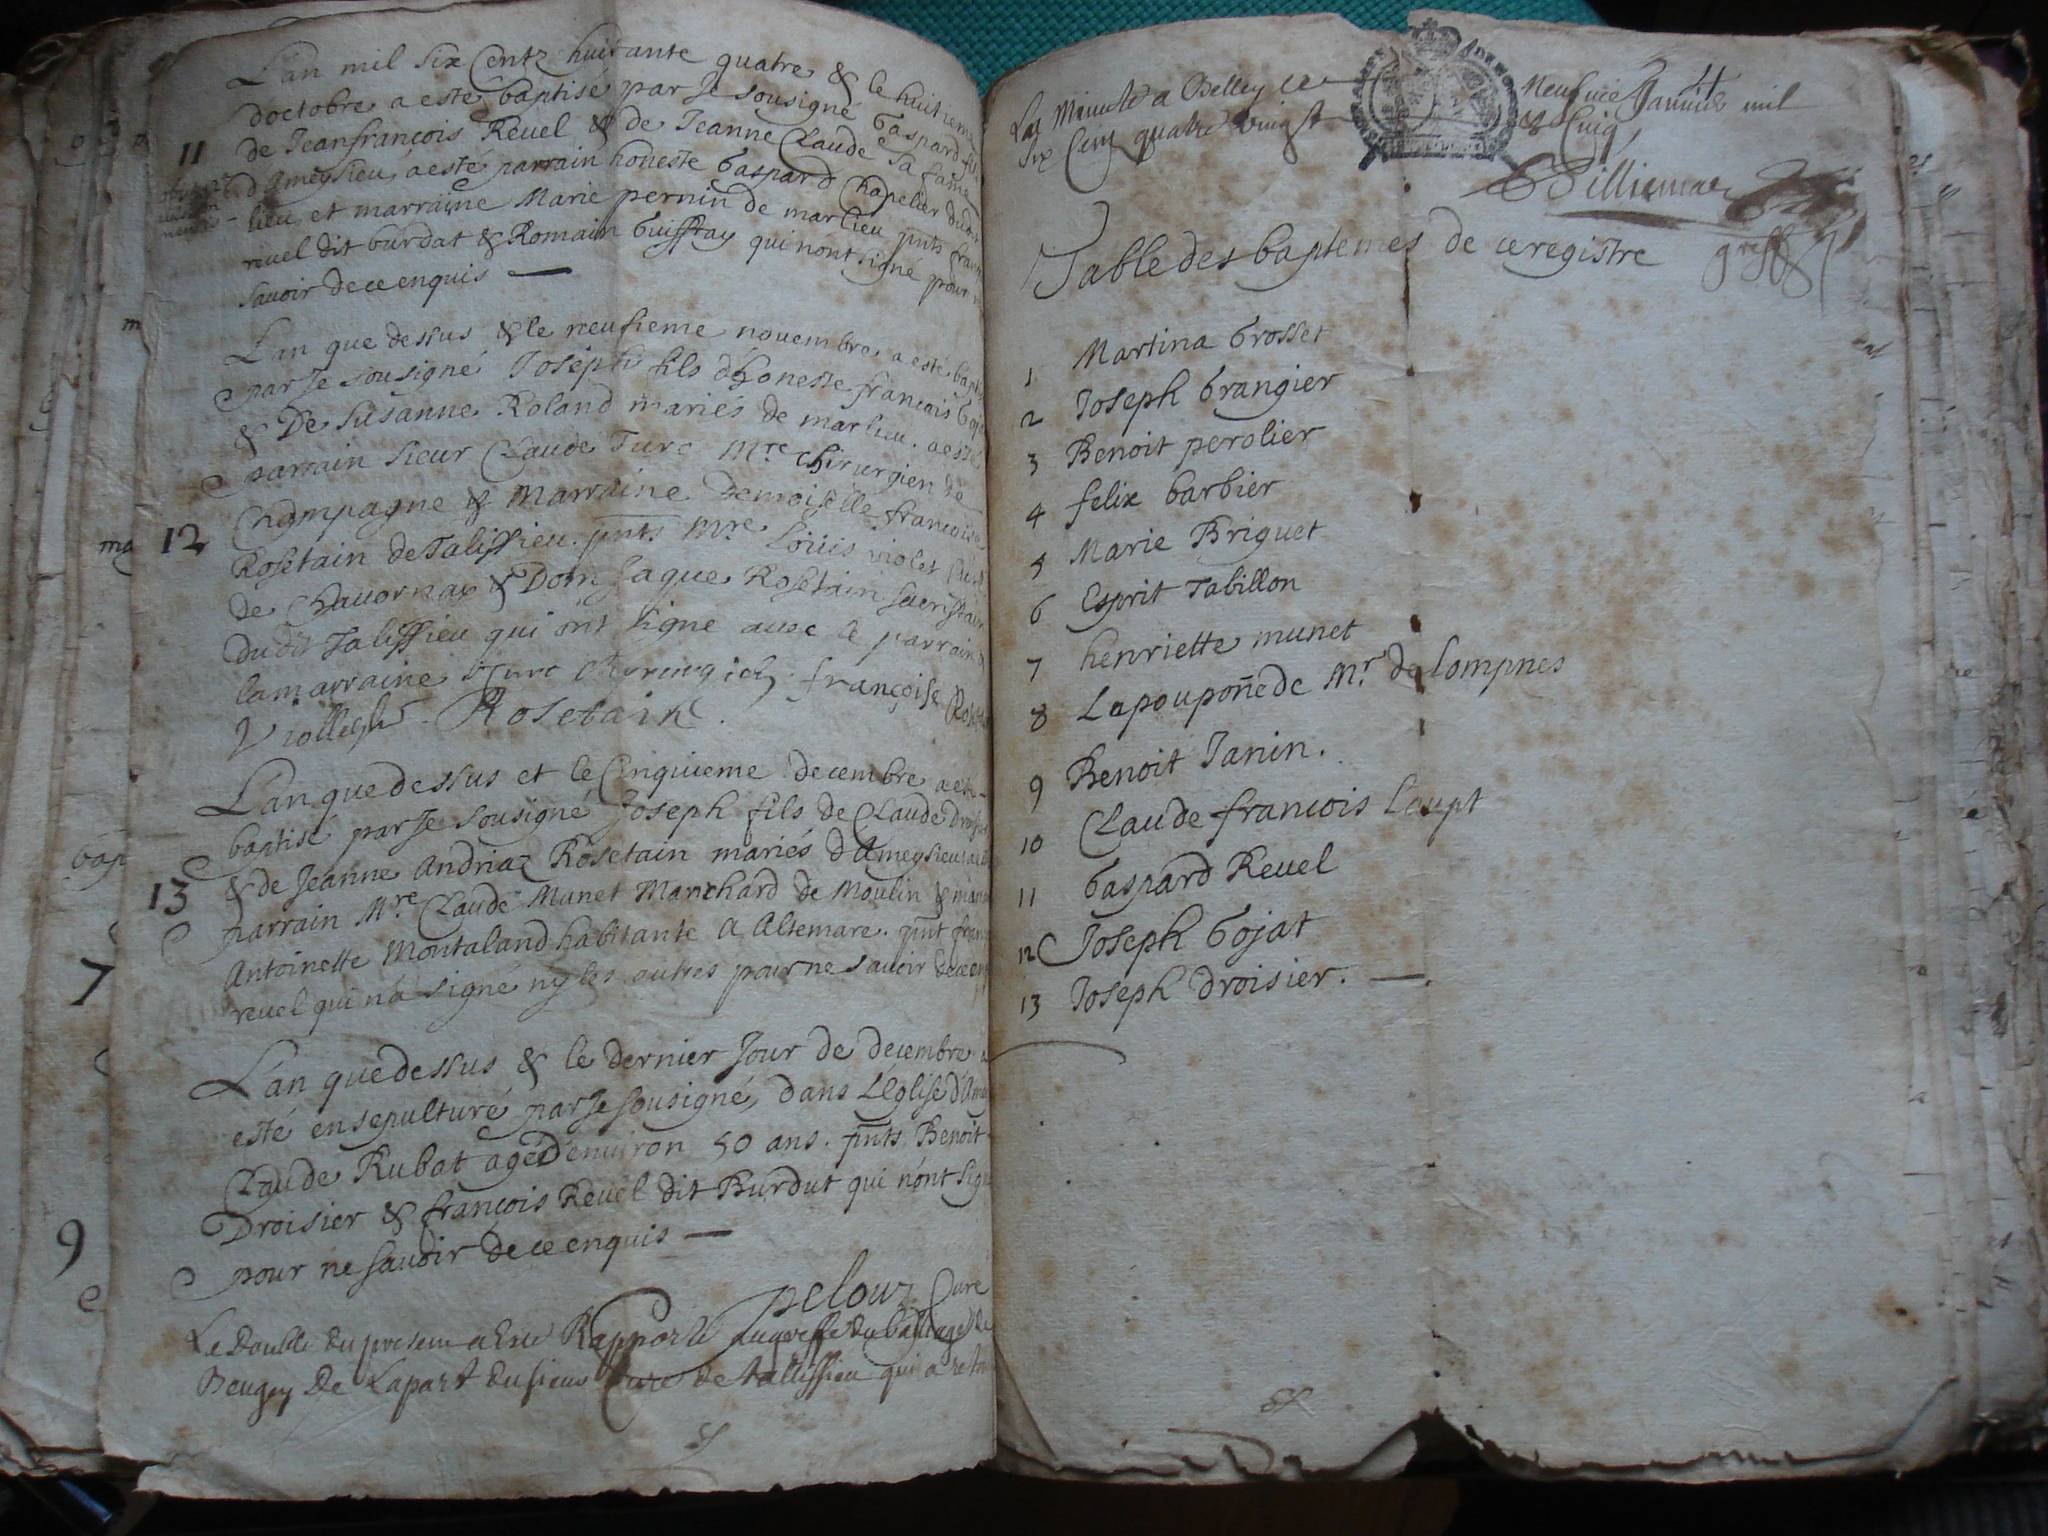 L'an mil six Centz huictante quatre & le huitieme
doctobre a esté baptisé par Je sousigné Gaspard fils
11
de Jeanfrancois Revel & de Jeanne Claude sa fame
d'Ameysieu, a esté parrain honeste Gaspard Chapelier dudit
lieu et marraine Marie pernin de marlieu pnts franc
revel dit burdat & Romain Guiffray qui n'ont signé pour n
savoir de ce enquis —
L'an que dessus & le neufieme novembre a esté bapti
par Je sousigné Joseph fils d'honeste francois Goja
& De Susanne Roland mariés de marlieu. a esté
parrain sieur Claude Turc Mre chirurgien de
Champagne & Marraine Demoiselle francoise
12
Rosetain de Talissieu. pnts Mre Loüis violet Curé
de Chavornay & Dom Jaque Rosetain sacristain
Dudit Talissieu qui ont signe avec le parrain &
lamarraine Turc Chyrurgien françoise Roset
Viollet Rosetain.
L'an que dessus et le Cinquieme decembre a esté
baptisé par Je sousigné Joseph fils de Claude Droisi
13
& de Jeanne Andriaz Rosetain mariés d'Ameysieu
parrain Mre Claude Munet Marchard de Moulin & marr
Antoinette Montaland habitante A Altemare. pnt fran
revel qui n'a signé ny les autres pour ne savoir de ce en
L'an que dessus & le dernier Jour de decembre a
esté ensepulturé par Je sousigné, dans L'Eglise d'Am
Claude Rubat agé D'environ 50 ans. pnts Benoit
Droisier & françois Revel dit Burdut qui n'ont sign
pour ne savoir de ce enquis —
pelouz Curé
Le double du present a Este Rapporté au greffe du bailliage de
Beugey De Lapart du sieur Curé de tallissieu qui a reti
4
La Minute a Belley ce Neufvie Janvier mil
six Cens quatre vingst et Cinq
greff
Table des baptemes de ce registre
1 Martina Grosset
2 Joseph Grangier
3 Benoit perolier
4 felix barbier
5 Marie Briguet
6 Esprit Tabillon
7 henriette munet
8 Lapouponne de Mr de Lompnes
9 Benoit Janin.
10 Claude francois Loupt
11 Gaspard Revel
12 Joseph Gojat
13 Joseph droisier. —